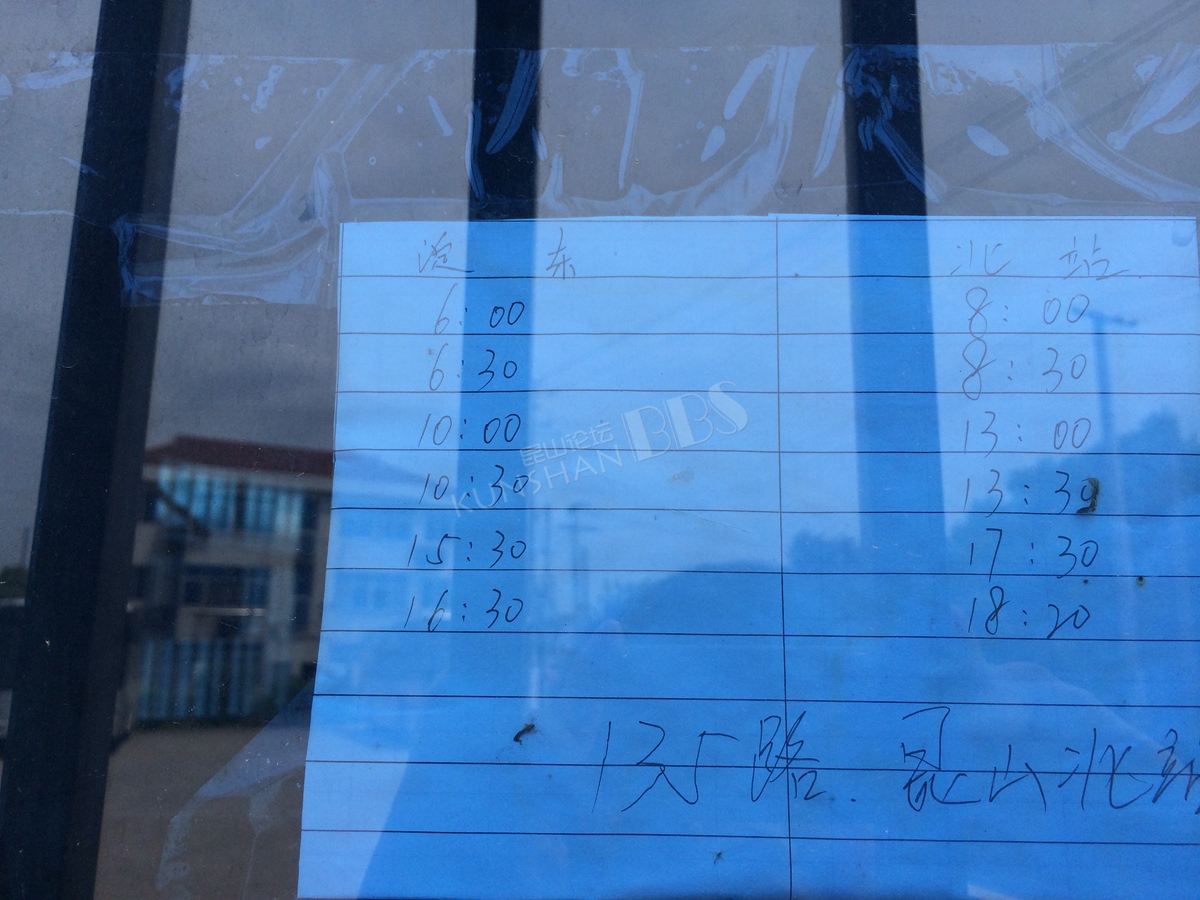 淀东 北站
6:00 8:00
6:30 8:30
10:00 13:00
10:30 13:30
15:30 17:30
16:30 18:20
135路.昆山北站
昆山论坛
KUNSHAN BBS